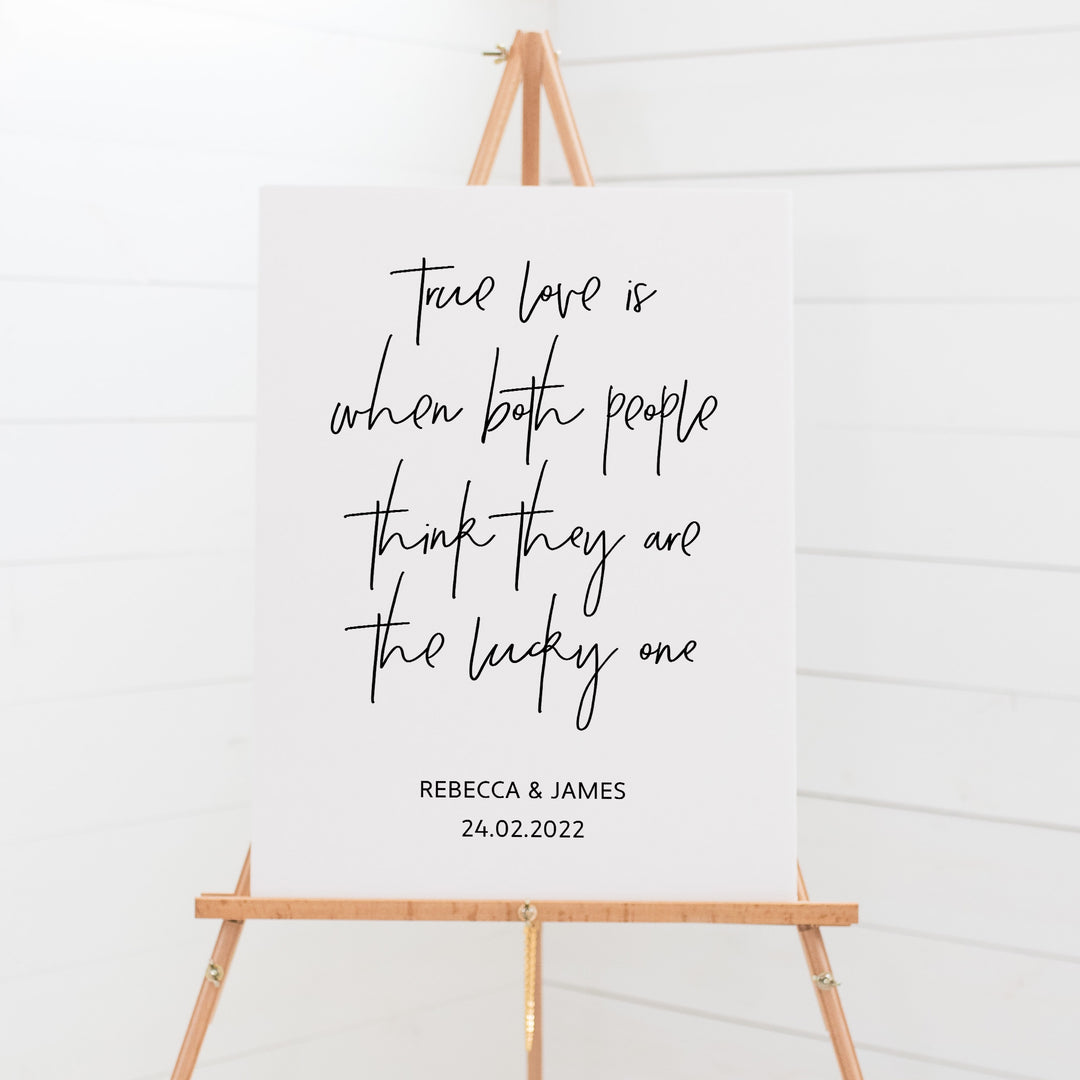 True love is
when both people
think they are
the lucky one
REBECCA & JAMES
24.02.2022